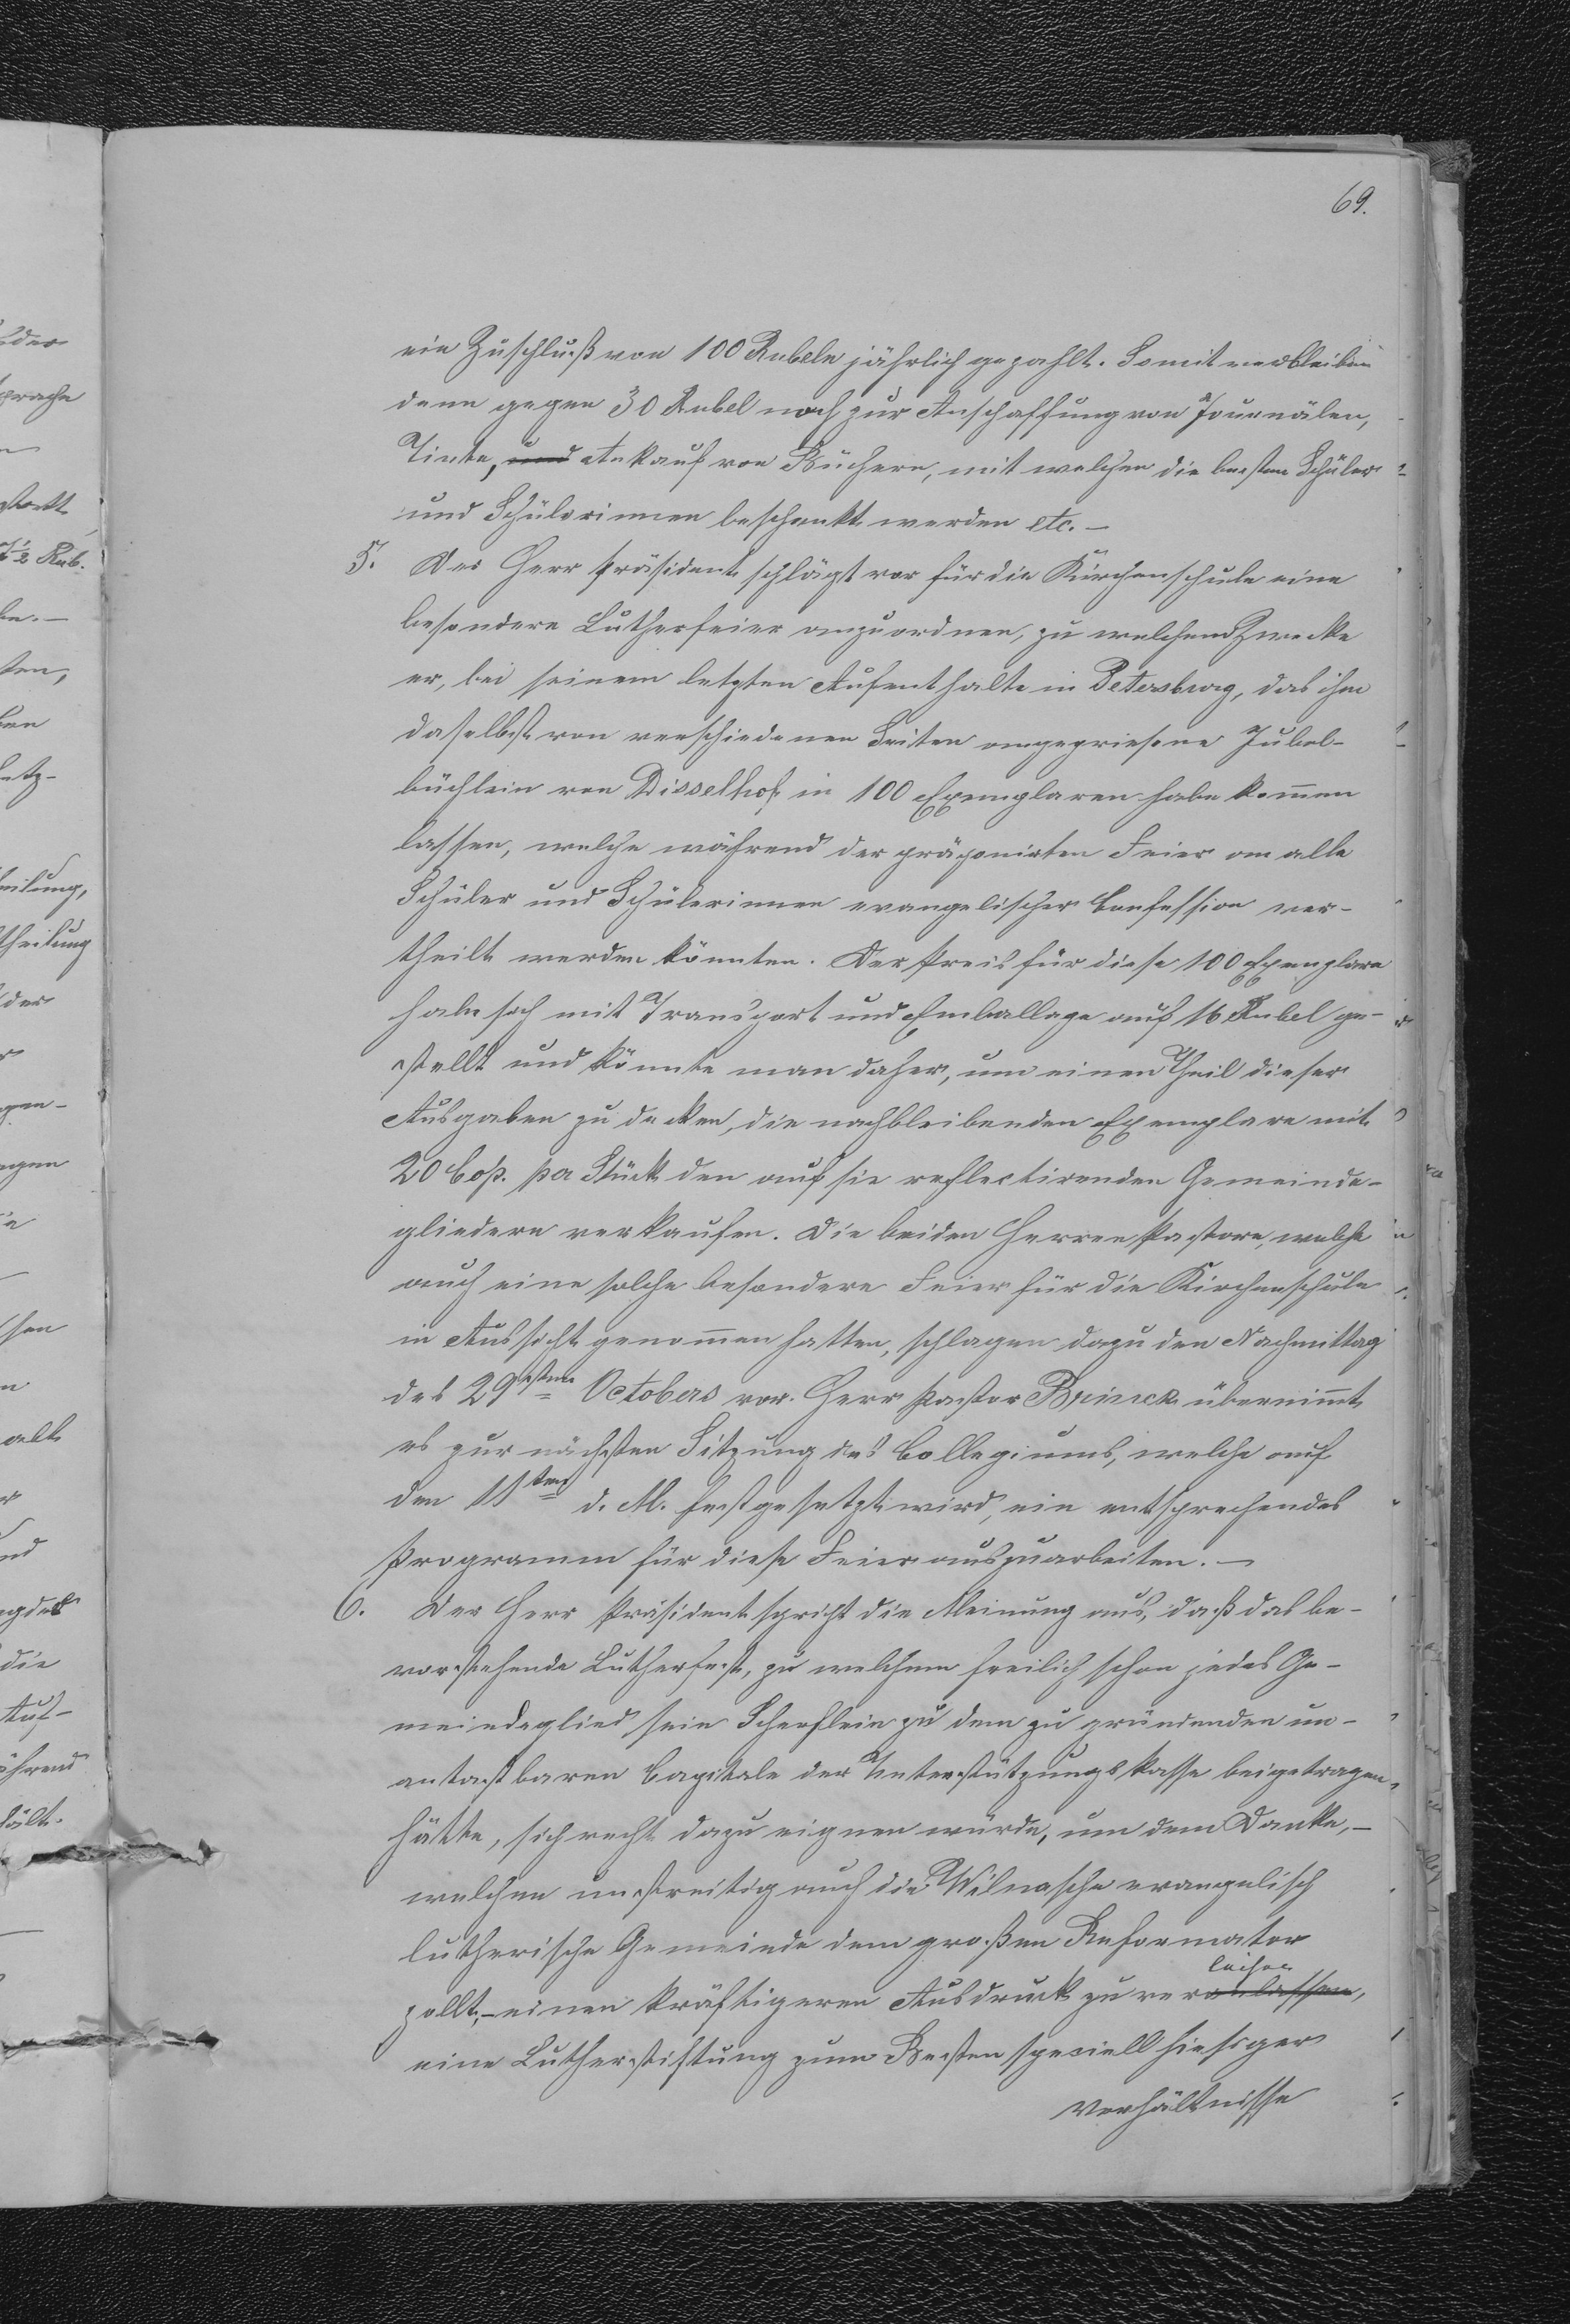 69.
ein Zuschluß von 100 Rubeln jährlich gezahlt. Somit verbleiben
denn gegen 30 Rubel noch zur Anschaffung von Journälen,
Tinte, und Ankauf von Büchern, mit welchen die besten Schüler
und Schülerinnen beschenkt werden etc. —
5. Der Herr Präsident schlägt vor für die Kirchenschule eine
besondere Lutherfeier anzuordnen, zu welchem Zwecke
er, bei seinem letzten Aufenthalte in Petersburg, das ihm
daselbst von verschiedenen Seiten angepriesene Jubel-
büchlein von Disselhof in 100 Exemplaren habe kommen
lassen, welche während der präponirten Feier an alle
Schüler und Schülerinnen evangelischer Confession ver-
theilt werden könnten. Der Preis für diese 100 Exemplare
habe sich mit Transport und Emballage auf 16 Rubel ge-
stellt und könnte man daher, um einen Theil dieser
Ausgaben zu decken, die nachbleibenden Exemplare mit
20 Cop. per Stück den auf sie reflectirenden Gemeinde-
gliedern verkaufen. Die beiden Herren Pastore, welche
auch eine solche besondere Feier für die Kirchenschule
in Aussicht genommen hatten, schlagen dazu den Nachmittag
des 29sten Octobers vor. Herr Pastor Brinck übernimmt
es zur nächsten Sitzung des Collegiums, welche auf
den 11ten d. M. festgesetzt wird, ein entsprechendes
Programm für diese Feier auszuarbeiten. —
6. Der Herr Präsident spricht die Meinung aus, daß das be-
vorstehende Lutherfest, zu welchem freilich schon jedes Ge-
meindeglied sein Scherflein zu dem zu gründenden un-
antastbaren Capitale der Unterstützungskasse beigetragen
hätte, sich recht dazu eignen würde, um dem Danke, —
welchen unstreitig auch die Wilnasche evangelisch
lutherische Gemeinde dem großen Reformator
leihen
zollt, — einen kräftigeren Ausdruck zu veranlassen,
eine Lutherstiftung zum Besten speciell hiesiger
Verhältnisse